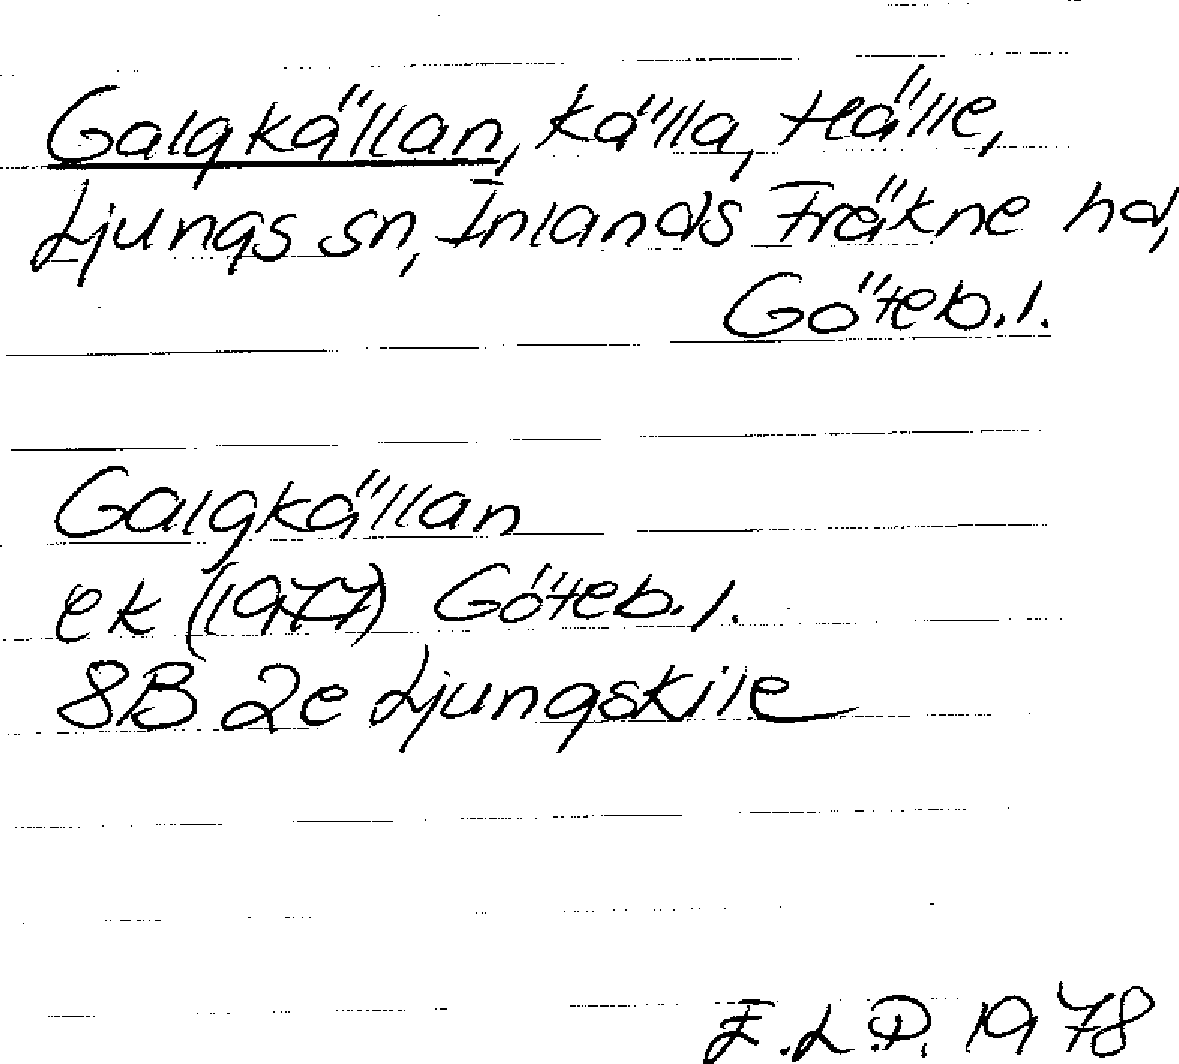 Galgkällan, källa, Hälle,
Ljungs sn, Inlands Fräkne hd,
Göteb.l.
Galgkällan
ek (1977) Göteb.l.
8B 2e Ljungskile
E.L.P. 1978